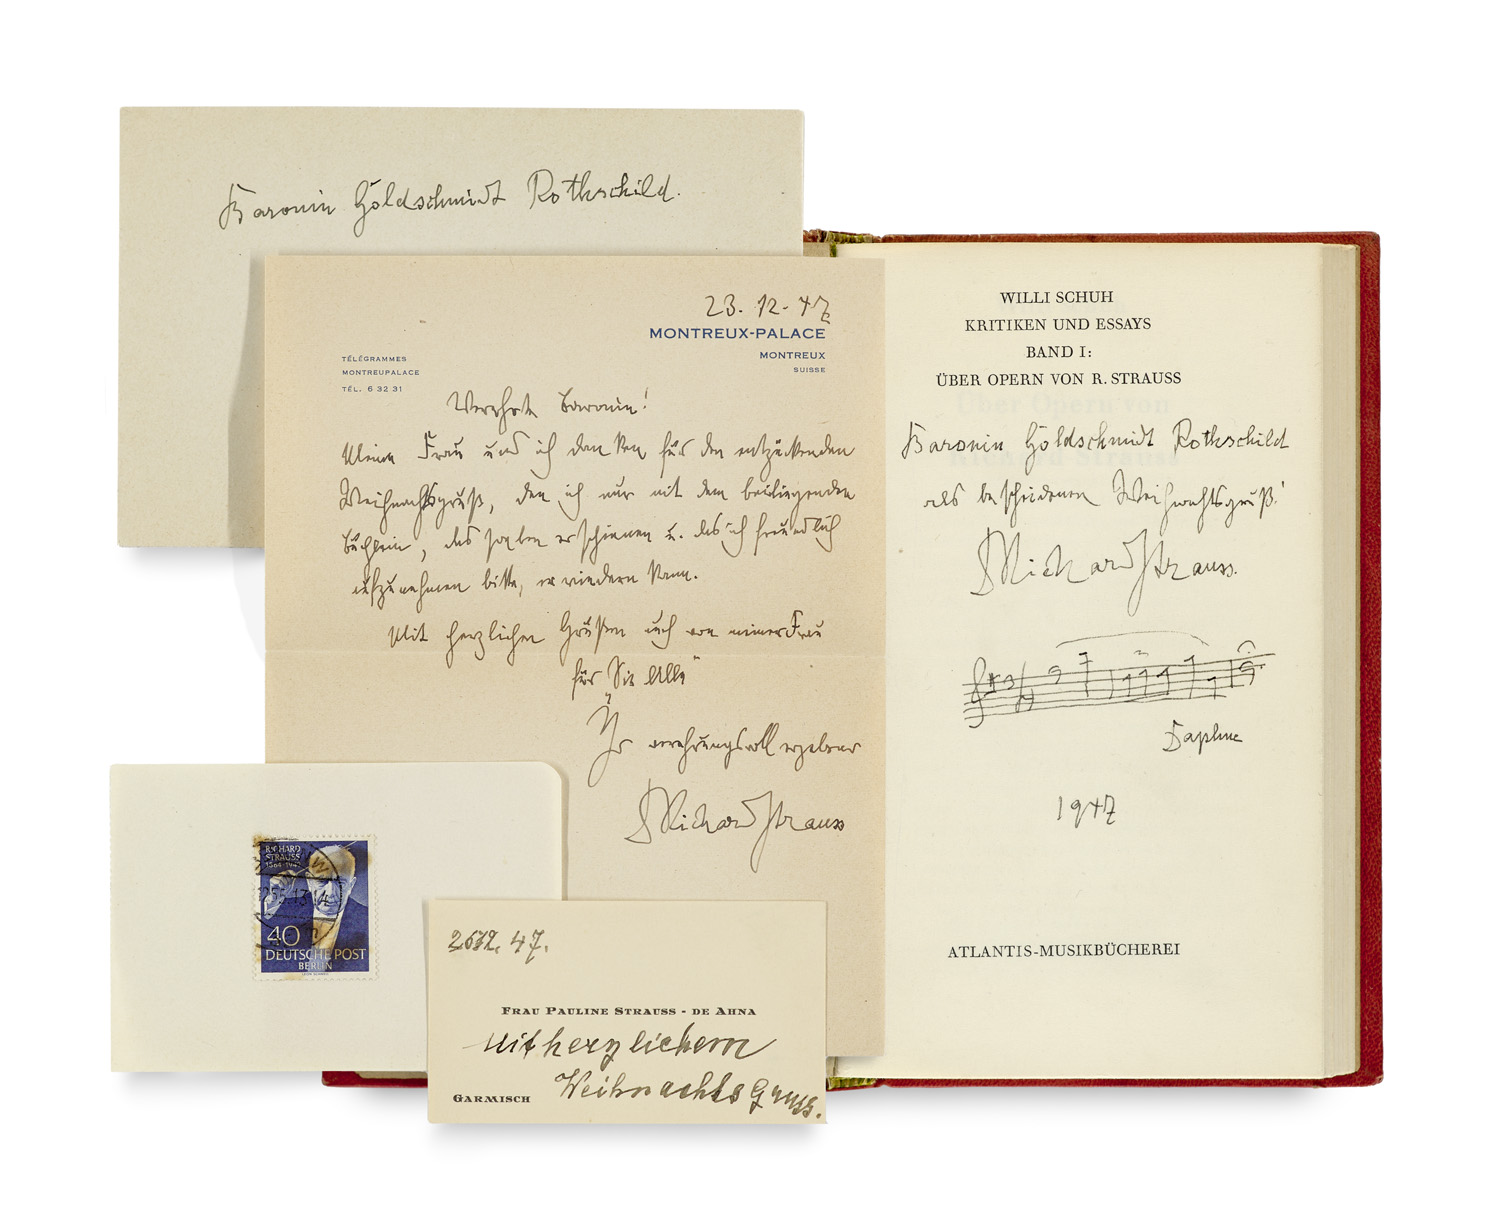 Baronin Goldschmidt Rothschild.
23. 12. 47
MONTREUX-PALACE
MONTREUX
SUISSE
TÉLÉGRAMMES
MONTREUPALACE
TÉL. 6 32 31
Verehrte Baronin!
Meine Frau und ich danken für den entzückenden
Weihnachtsgruß, den ich nur mit dem beiliegenden
Büchlein, das soeben erschienen u. das ich freundlich
aufzunehmen bitte, erwiedern kann.
Mit herzlichen Grüßen auch von meiner Frau
für Sie Alle
Ihr verehrungsvoll ergebener
Richard Strauss
WILLI SCHUH
KRITIKEN UND ESSAYS
BAND I:
ÜBER OPERN VON R. STRAUSS
Baronin Goldschmidt Rothschild
als bescheidenen Weihnachtsgruß!
Richard Strauss.
Daphne
1947
ATLANTIS-MUSIKBÜCHEREI
RICHARD
STRAUSS
1864-1949
40
DEUTSCHE POST
BERLIN
47.
FRAU PAULINE STRAUSS - DE AHNA
Mit herzlichem
Weihnachts Gruss.
GARMISCH